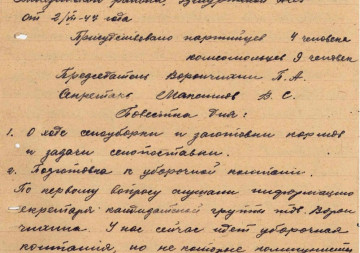 района,
от 2/III-47 года
Присутствовало партийцев 4 человека
комсомольцев 9 человек
Председатель Ворончихин П.А.
Секретарь В.С.
Повестка дня:
1. О ходе сеноуборки и заготовки кормов
и задачи сенопоставки.
2. Подготовка к уборочной компании.
По первому вопросу слушали информацию
секретаря кандидатской группы тов. Ворон
чихина. У нас сейчас идет уборочная
компания, но не которые коммунисты